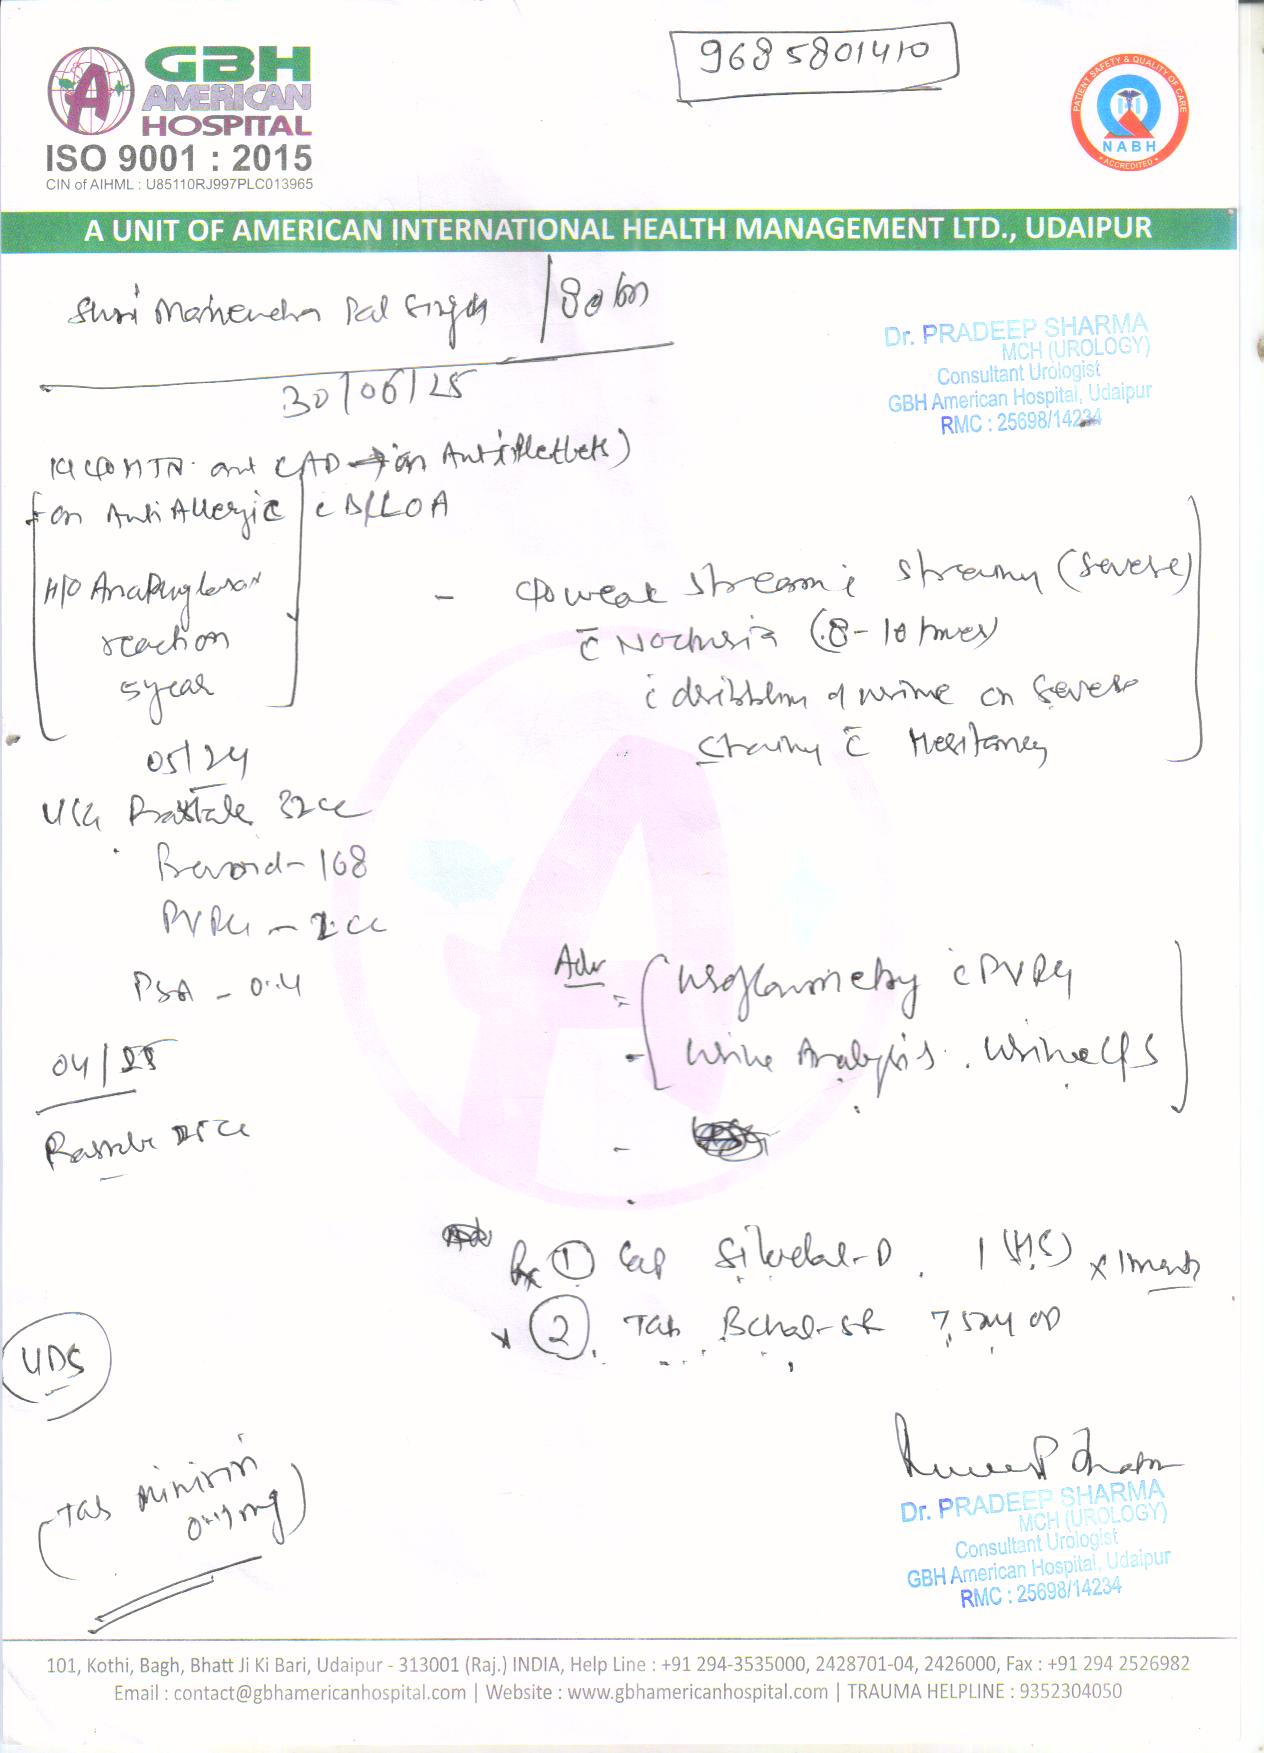 GBH
AMERICAN
HOSPITAL
ISO 9001 : 2015
CIN of AIHML : U85110RJ997PLC013965
9685801410
PATIENT SAFETY & QUALITY OF CARE
NABH
ACCREDITED
A UNIT OF AMERICAN INTERNATIONAL HEALTH MANAGEMENT LTD., UDAIPUR
Shri Mahendra Pal Singh / 80
30/06/25
Dr. PRADEEP SHARMA
MCH (UROLOGY)
Consultant Urologist
GBH American Hospital, Udaipur
RMC : 25698/14234
HTN and CAD → on Antiplatlets)
on Anti Allergic
H/O
reaction
5 year
- weak stream c straining (severe)
c Nocturia (8-10 times)
c dribbling of urine on severe
straining c Hesitancy
05/24
USG Prostate 32cc
Prevoid - 168
PVRU - 2cc
PSA - 0.4
04/25
Prostate 25cc
Adv
= Uroflowmetry c PVRU
- Urine Analysis. Urine C/S
Rx 1 Cap Silodal-D 1 (HS) x 1 month
2 Tab SR 7.5 mg OD
UDS
(Tab Minirin
0.1 mg)
Dr. PRADEEP SHARMA
MCH (UROLOGY)
Consultant Urologist
GBH American Hospital, Udaipur
RMC : 25698/14234
101, Kothi, Bagh, Bhatt Ji Ki Bari, Udaipur - 313001 (Raj.) INDIA, Help Line : +91 294-3535000, 2428701-04, 2426000, Fax : +91 294 2526982
Email : contact@gbhamericanhospital.com | Website : www.gbhamericanhospital.com | TRAUMA HELPLINE : 9352304050